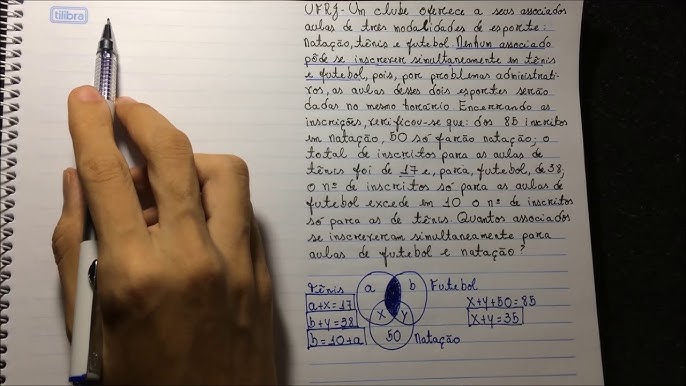 tilibra
UFRJ - Um clube oferece a seus associados
aulas de três modalidades de esporte:
natação, tênis e futebol. Nenhum associado
pôde se inscrever simultaneamente em tênis
e futebol, pois, por problemas administrati-
vos, as aulas desses dois esportes serão
dadas no mesmo horário. Encerradas as
inscrições, verificou-se que: dos 85 inscritos
em natação, 50 só farão natação; o
total de inscritos para as aulas de
tênis foi de 17 e, para, futebol, de 38;
o nº de inscritos só para as aulas de
futebol excede em 10 o nº de inscritos
só para as de tênis. Quantos associados
se inscreveram simultaneamente para
aulas de futebol e natação?
Tênis a b Futebol
a+x=17
b+y=38
b=10+a
x y
50 Natação
x+y+50=85
x+y=35